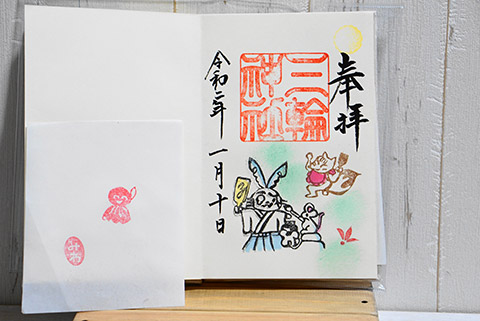 奉拝
三輪
神社
令和二年 一月十日